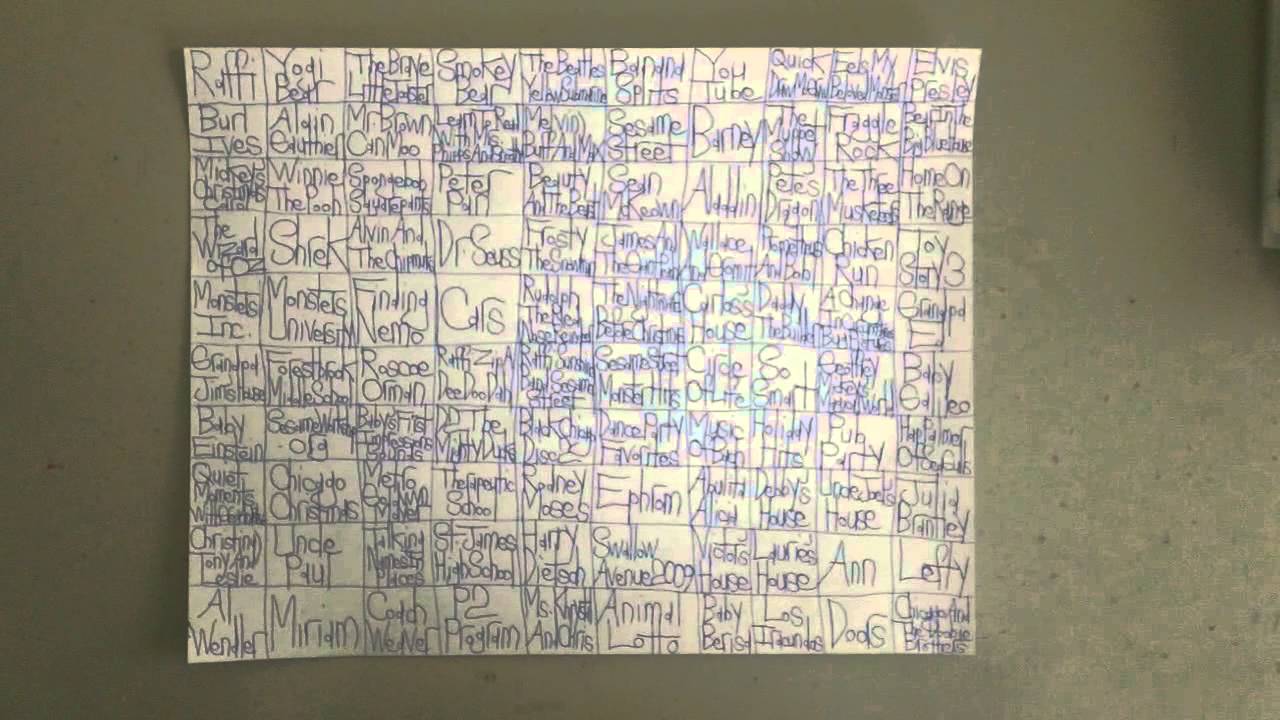 Raffi Yogi Bear The Brave Little Toaster Smokey Bear The Beatles Yellow Submarine Banana Splits You Tube Quick Draw McGraw Eels My Beloved Monster Elvis Presley
Burl Ives Alain Gauthier Mr. Brown Can Moo Learn To Read With Ms. Phonics And Melvin Burt And Max Sesame Street Barney The Muppet Show Fraggle Rock Bear In The Big Blue House
Mickey's Christmas Carol Winnie The Pooh Spongebob Squarepants Peter Pan Beauty And The Beast Sean McKeown Aladdin Pete's Dragon The Three Musketeers Home On The Range
The Wizard Of Oz Shrek Alvin And The Chipmunks Dr. Seuss Frosty The Snowman James And The Giant Peach Wallace And Gromit Prometheus And Bob Chicken Run Toy Story 3
Monsters Inc. Monsters University Finding Nemo Cars Rudolph The Red Nosed Reindeer The Nightmare Before Christmas Carlos's House Daddy The Builder A Change Grandpa Ed
Grandpa Jim's House Forestbrook Middle School Roscoe Orman Raffi Zip A Dee Doo Dah Raffi Sunshine Band Sesame Street Sesame Street Monster Hits Circle Of Life So Small Geoffrey Mickey's World Baby Galileo
Baby Einstein Sesame Workshop Org Baby's First Impressions Sounds D2 The Mighty Ducks Disc 2 Dance Party Favorites Music Of Bach Holiday Hits Pub Party Hap Palmer
Quiet Moments With Chicago Christmas Metro Goldwyn Mayer Therapeutic School Rodney Moses Ephram Abuelita Alicia Debby's House Uncle Joel's House Julia Brantley
Christina Tony And Leslie Uncle Paul Talking Names In Places St. James High School Harry Dietson Swallow Avenue 2009 Victor's House Laurie's House Ann Lefty
Al Wendler Miriam Coach Weaver P2 Program Ms. Krysta And Chris Animal Lotto Baby Berisa Los Iracundos Doors Chicago And The Doobie Brothers